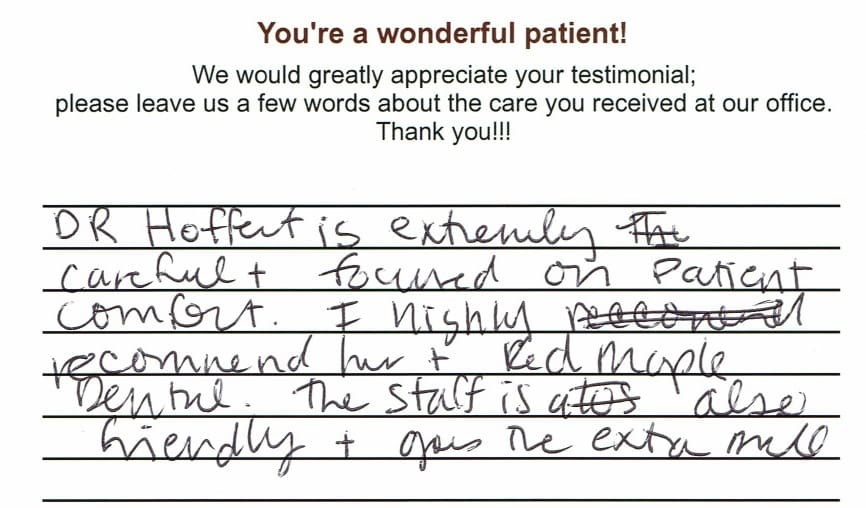 You're a wonderful patient!
We would greatly appreciate your testimonial;
please leave us a few words about the care you received at our office.
Thank you!!!
DR Hoffert is extremely
careful + focused on Patient
comfort. I highly
recommend her + Red Maple
Dental. The staff is also
friendly + goes the extra mile